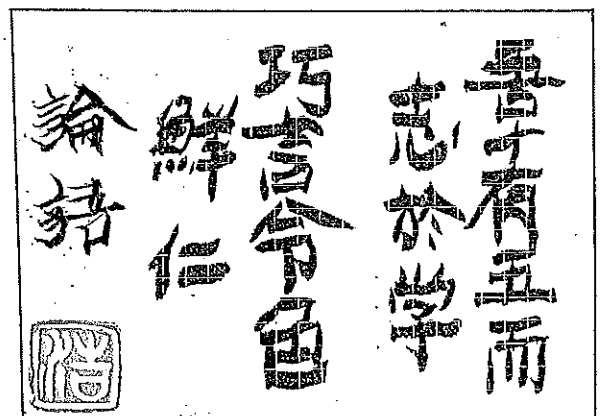 吾十有五而
志於学
巧言令色
鮮仁
論語